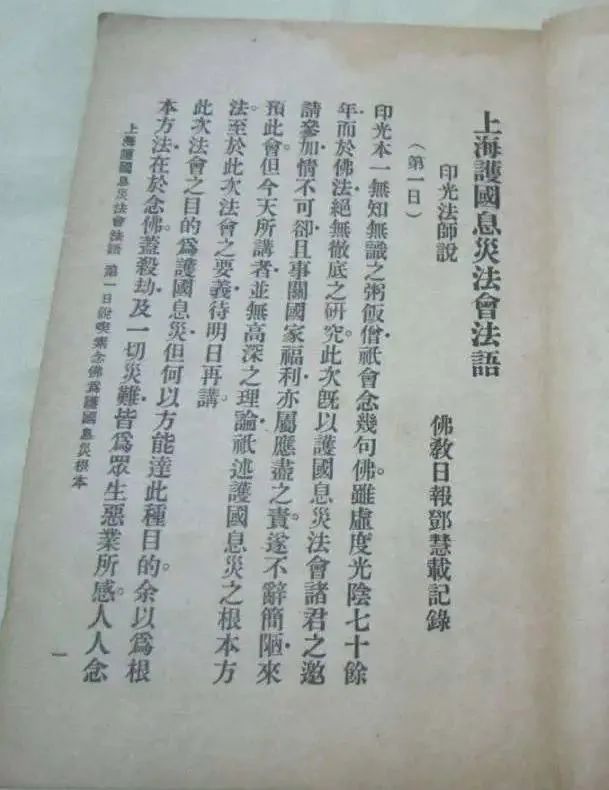 上海護國息災法會法語
印光法師說　佛教日報鄧慧載記錄
（第一日）
印光本一無知無識之粥飯僧・祇會念幾句佛。雖虛度光陰七十餘
年・而於佛法・絕無徹底之研究。此次既以護國息災法會諸君之邀
請參加・情不可卻・且事關國家福利・亦屬應盡之責。遂不辭簡陋・來
預此會・但今天所講者・並無高深之理論・祇述護國息災之根本方
法。至於此次法會之要義・待明日再講。
此次法會之目的・爲護國息災・但何以方能達此種目的。余以爲根
本方法・在於念佛。蓋殺劫及一切災難・皆爲眾生惡業所感。人人念
上海護國息災法會法語　第一日說喫素念佛爲護國息災根本
一